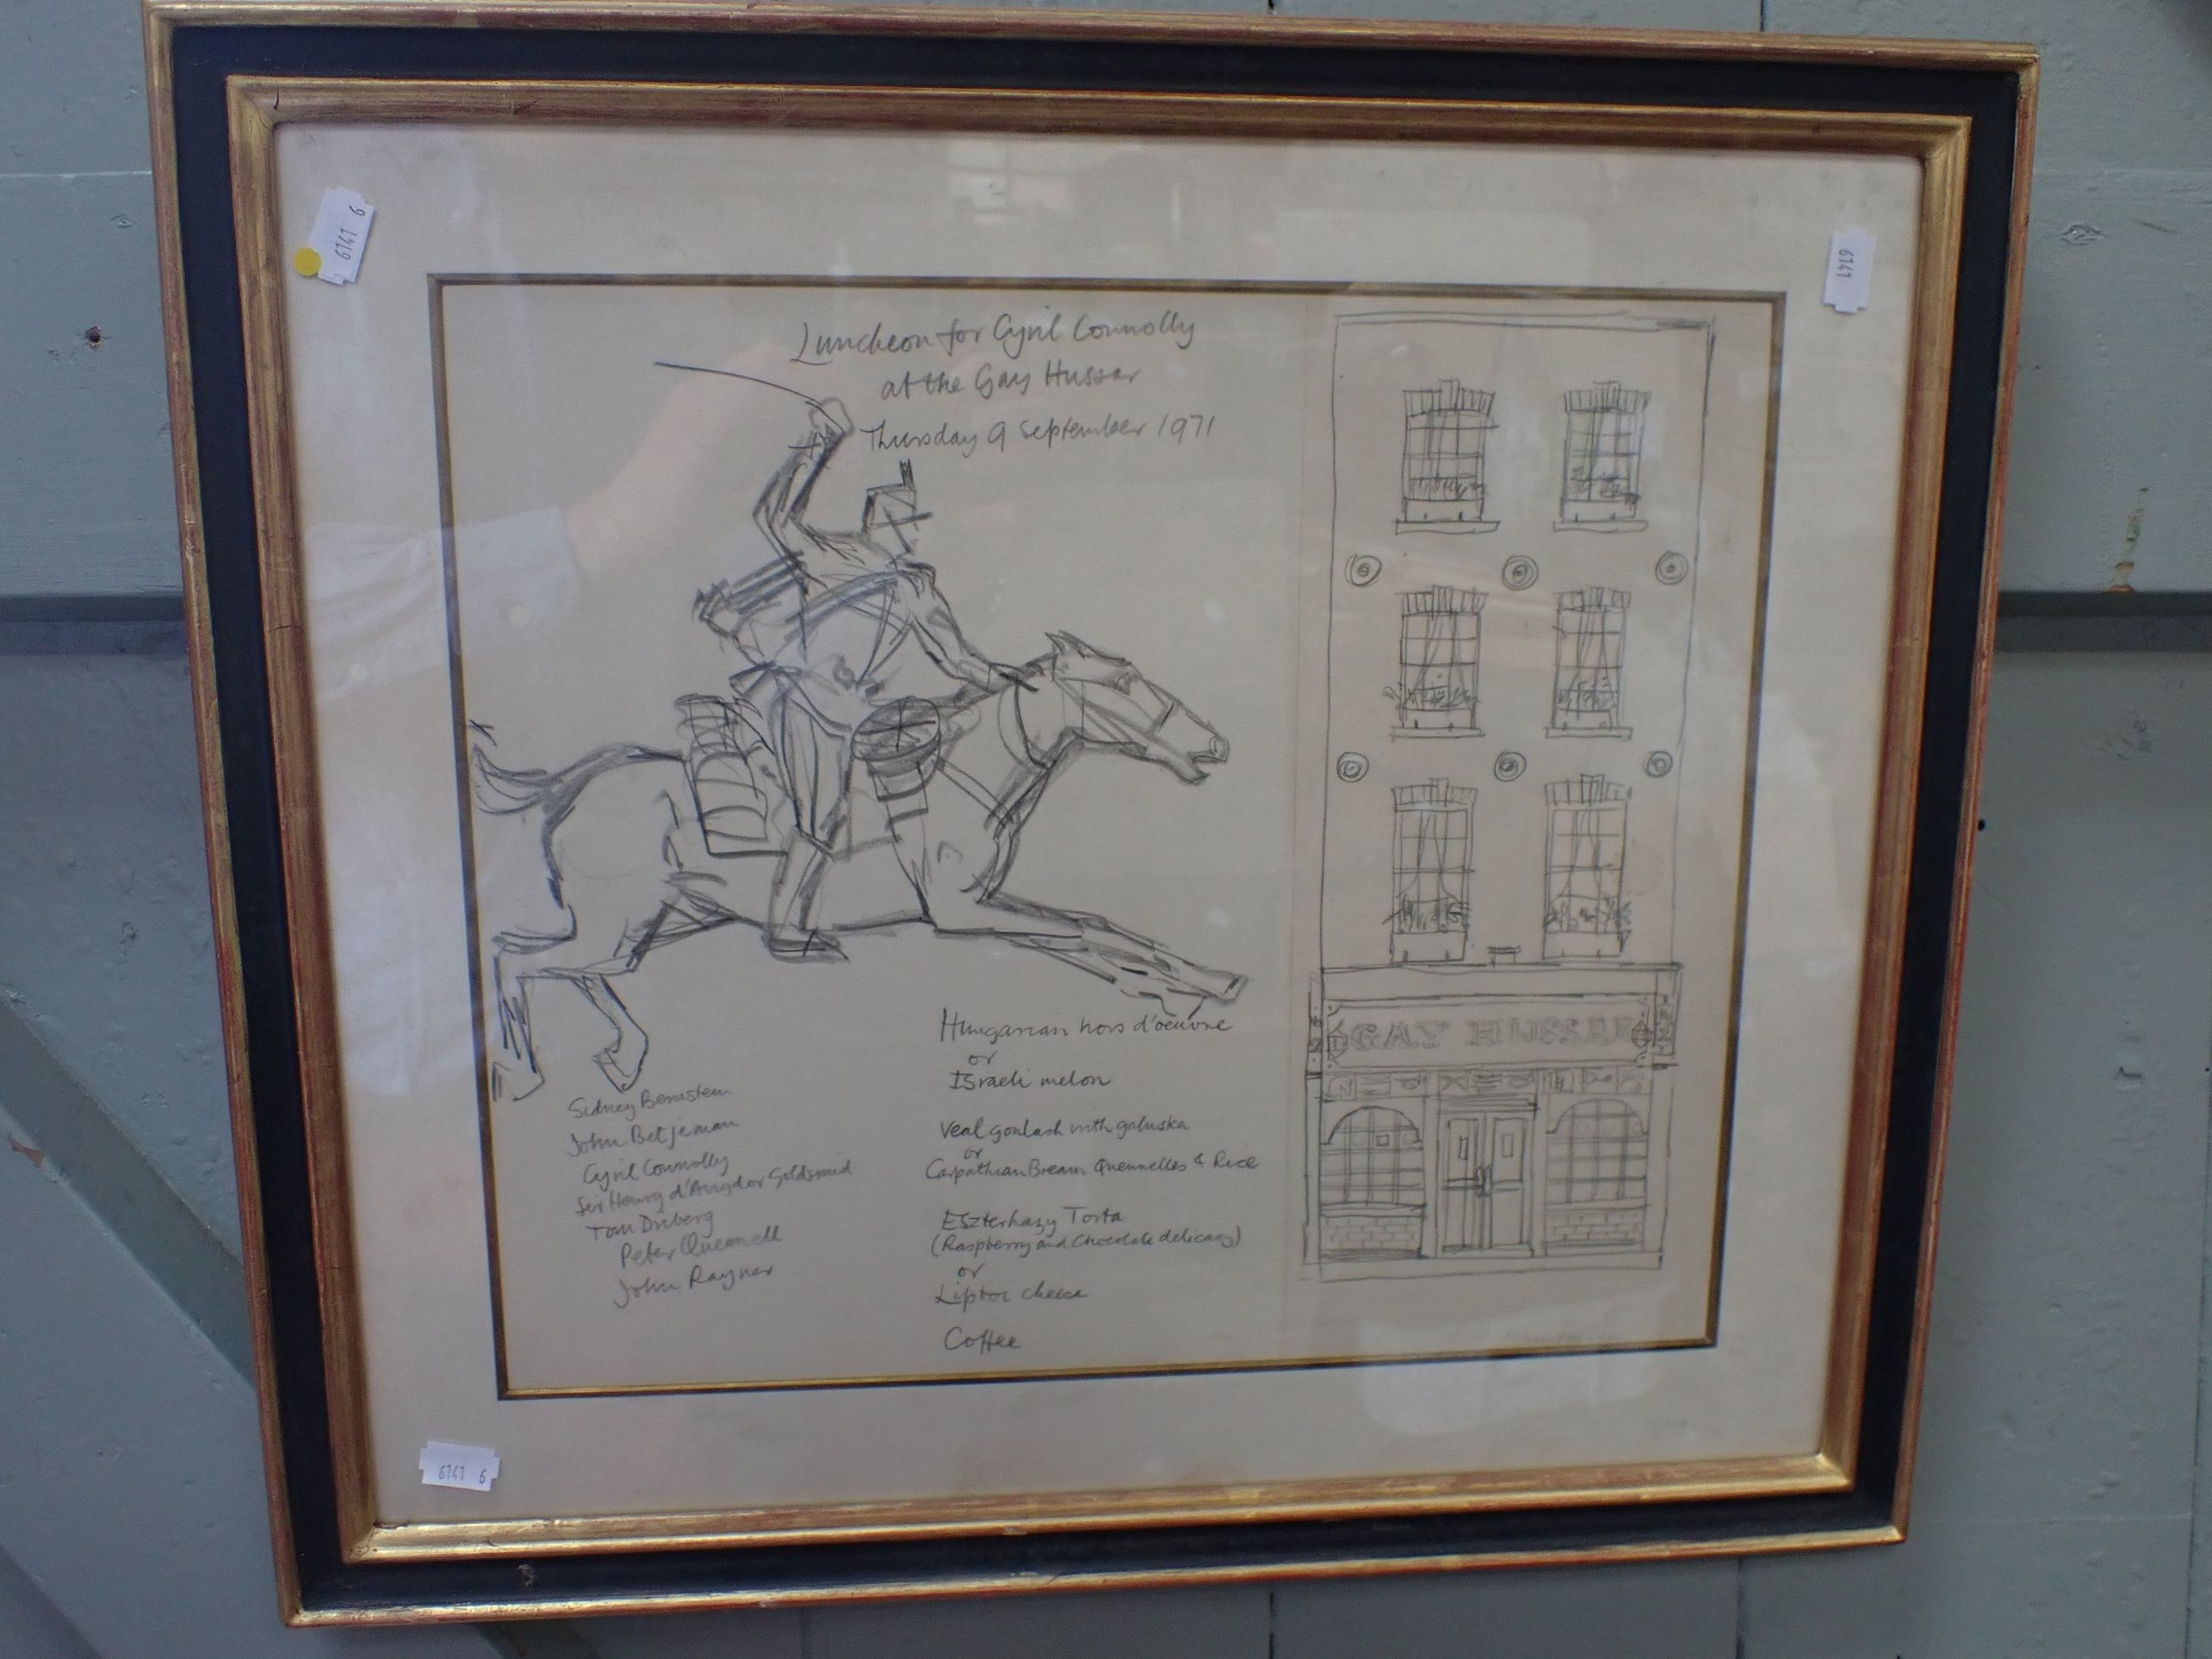 Luncheon for Cyril Connolly
at the Gay Hussar
Thursday 9 September 1971
GAY HUSSAR
Sidney Bernstein
John Betjeman
Cyril Connolly
Sir Henry d'Avigdor Goldsmid
Tom Driberg
Peter Quennell
John Rayner
Hungarian hors d'oeuvre
or
Israeli melon
Veal goulash with galuska
or
Carpathian Bream Quennelles & Rice
Eszterhazy Torta
(Raspberry and Chocolate delicacy)
or
Liptoi cheese
Coffee
6141 6
6141
6141 6